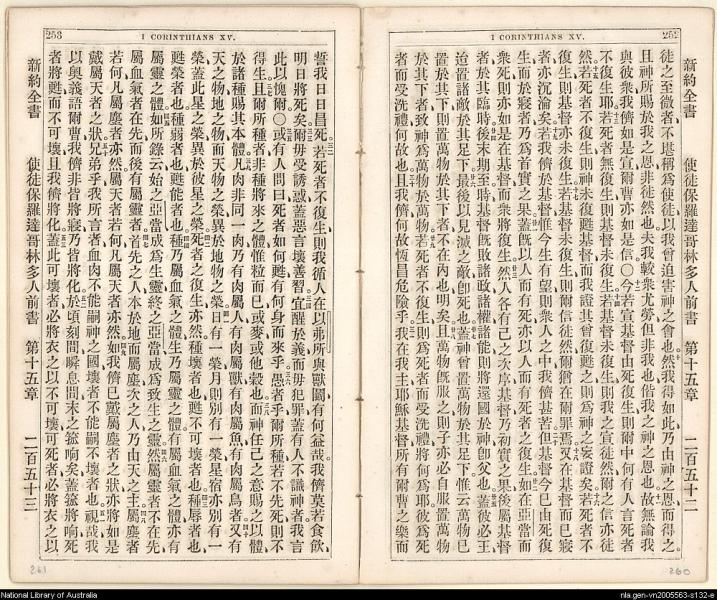 252
I CORINTHIANS XV.
新約全書 使徒保羅達哥林多人前書 第十五章 二百五十二
徒之至微者不堪稱爲使徒以我曾迫害神之會也然我得如此乃由神之恩而得之
且神所賜於我之恩非徒然也夫我較衆尤勞但非我也偕我之神之恩也故無論我
與彼衆我儕如是宣爾曹亦如是信〇今若宣基督由死復生則爾中何有人言死者
不復生耶若死者無復生則基督亦未復生若基督未復生則我之宣徒然爾之信亦徒
然若死者不復生則神未復甦基督而我證其曾復甦之則爲神之妄證矣若死者不
復生則基督亦未復生若基督未復生則爾信徒然爾猶在爾罪焉又在基督而已寢
者亦沉淪矣若我儕於基督惟今生有望則衆人之中我儕甚苦但基督今已由死復
生而於寢者乃爲首實之果蓋旣以人而有死亦以人而有死者之復生如在亞當而
衆死則亦如是在基督而衆將復生然人各有己之次序基督乃初實之果後屬基督
者於其臨時後末期至時基督旣敗諸政諸權諸能則將還國於神卽父也蓋彼必王
迨置諸敵於其足下最後以見滅之敵卽死也蓋神曾置萬物於其足下惟云萬物已
置於其下則置萬物於其下者不在內也明矣且萬物旣服之則子亦必自服置萬物
於其下者致神爲萬物於萬物若死者不復生則爲死者而受洗禮將何爲彼爲死
者而受洗禮何故也且我儕何故恆冒危險乎我在我主耶穌基督所有爾曹之樂而
260
253
I CORINTHIANS XV.
誓我日日冒死若死者不復生則我循人在以弗所與獸鬬有何益哉我儕莫若食飲
明日將死矣爾毋受誘惑蓋惡言壞善習宜醒於義而毋犯罪蓋有人不識神者我言
此以愧爾〇或有人問曰死者如何甦有何身而來乎愚者乎爾所種若不先死則不
得生且爾所種者非種將來之體惟粒而已或麥或他穀也而神任己之意賜之以體
於諸種賜其本體凡肉非同一肉乃有肉屬人有肉屬獸有肉屬魚有肉屬鳥者又有
天之物地之物而天物之榮異於地物之榮日有一榮月則別有一榮星宿亦別有一
榮蓋此星之榮異於彼星之榮死者之復生亦然種壞者也甦不可壞者也種辱者也
甦榮者也種弱者也甦能者也種乃屬血氣之體生乃屬靈之體有屬血氣之體亦有
屬靈之體如所錄云始之亞當成爲生靈終之亞當成爲致生之靈然屬靈者不在先
屬血氣者在先而後有屬靈者首先之人本於地而屬塵次之人乃由天之主屬塵者
若何凡屬塵者亦然屬天者若何凡屬天者亦然如我儕已戴屬塵者之狀亦將如是
戴屬天者之狀兄弟乎我所言者血肉不能嗣神之國壞者不能嗣不壞者也視哉我
以奧義語爾曹我儕非皆將寢乃皆將化於頃刻間瞬息間末之箛响矣蓋箛將响死
者將甦而不可壞且我儕將化蓋此可壞者必將衣之以不可壞可死者必將衣之以
新約全書 使徒保羅達哥林多人前書 第十五章 二百五十三
261
National Library of Australia
nla.gen-vn2005563-s132-e